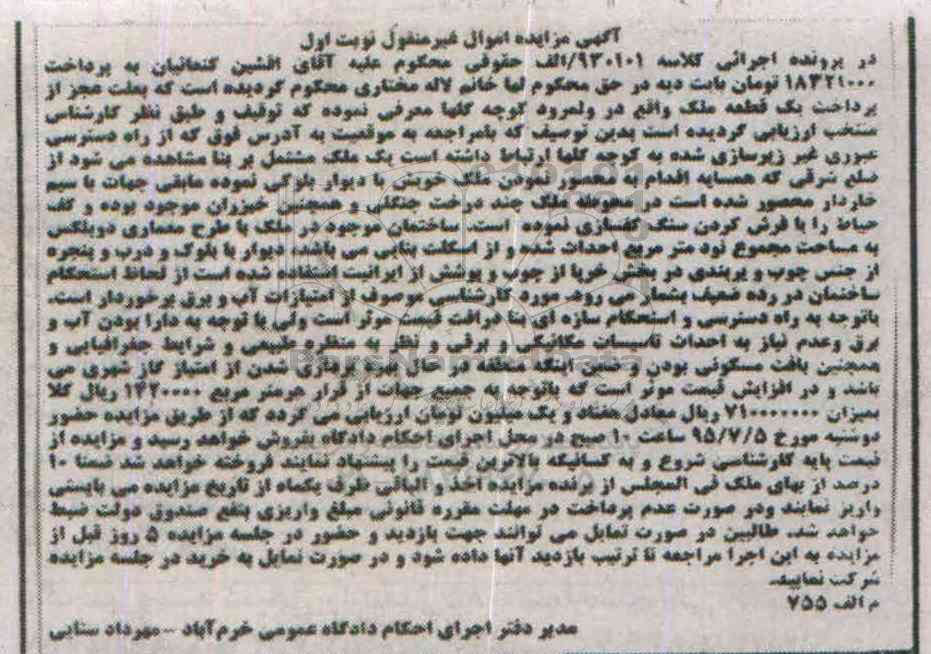 آگهی مزایده اموال غیرمنقول نوبت اول
در پرونده اجرائی کلاسه ۹۳۰۱۰۱/الف حقوقی محکوم علیه آقای افشین کنعانیان به پرداخت
۱۸۳۲۱۰۰۰ تومان بابت دیه در حق محکوم لها خانم لاله مختاری محکوم گردیده است که بعلت عجز از
پرداخت یک قطعه ملک واقع در ولمرود کوچه گلها معرفی نموده که توقیف و طبق نظر کارشناس
منتخب ارزیابی گردیده است بدین توصیف که بامراجعه به موقعیت به آدرس فوق که از راه دسترسی
عبوری غیر زیرسازی شده به کوچه گلها ارتباط داشته است یک ملک مشتمل بر بنا مشاهده می شود از
ضلع شرقی که همسایه اقدام به محصور نمودن ملک خویش با دیوار بلوکی نموده مابقی جهات با سیم
خاردار محصور شده است در محوطه ملک چند درخت جنگلی و همچنین خیزران موجود بوده و کف
حیاط را با فرش کردن سنگ کفسازی نموده است. ساختمان موجود در ملک با طرح معماری دوبلکس
به مساحت مجموع نود متر مربع احداث شده و از اسکلت بنایی می باشد. دیوار با بلوک و درب و پنجره
از جنس چوب و پربندی در بخش خرپا از چوب و پوشش از ایرانیت استفاده شده است از لحاظ استحکام
ساختمان در رده ضعیف بشمار می رود. مورد کارشناسی موصوف از امتیازات آب و برق برخوردار است.
باتوجه به راه دسترسی و استحکام سازه ای بنا درافت قیمت موثر است ولی با توجه به دارا بودن آب و
برق وعدم نیاز به احداث تاسیسات مکانیکی و برقی و نظر به منظره طبیعی و شرایط جغرافیایی و
همچنین بافت مسکونی بودن و ضمن اینکه منطقه در حال بهره برداری شدن از امتیاز گاز شهری می
باشد و در افزایش قیمت موثر است که باتوجه به جمیع جهات از قرار هرمتر مربع ۱۴۲۰۰۰۰ ریال کلا
بمیزان ۷۱۰۰۰۰۰۰۰ ریال معادل هفتاد و یک میلیون تومان ارزیابی می گردد که از طریق مزایده حضور
دوشنبه مورخ ۹۵/۷/۵ ساعت ۱۰ صبح در محل اجرای احکام دادگاه بفروش خواهد رسید و مزایده از
قیمت پایه کارشناسی شروع و به کسانیکه بالاترین قیمت را پیشنهاد نمایند فروخته خواهد شد ضمنا ۱۰
درصد از بهای ملک فی المجلس از برنده مزایده اخذ و الباقی ظرف یکماه از تاریخ مزایده می بایستی
واریز نمایند ودر صورت عدم پرداخت در مهلت مقرره قانونی مبلغ واریزی بنفع صندوق دولت ضبط
خواهد شد. طالبین در صورت تمایل می توانند جهت بازدید و حضور در جلسه مزایده ۵ روز قبل از
مزایده به این اجرا مراجعه تا ترتیب بازدید آنها داده شود و در صورت تمایل به خرید در جلسه مزایده
شرکت نمایید.
م الف ۷۵۵
مدیر دفتر اجرای احکام دادگاه عمومی خرم آباد – مهرداد سنایی